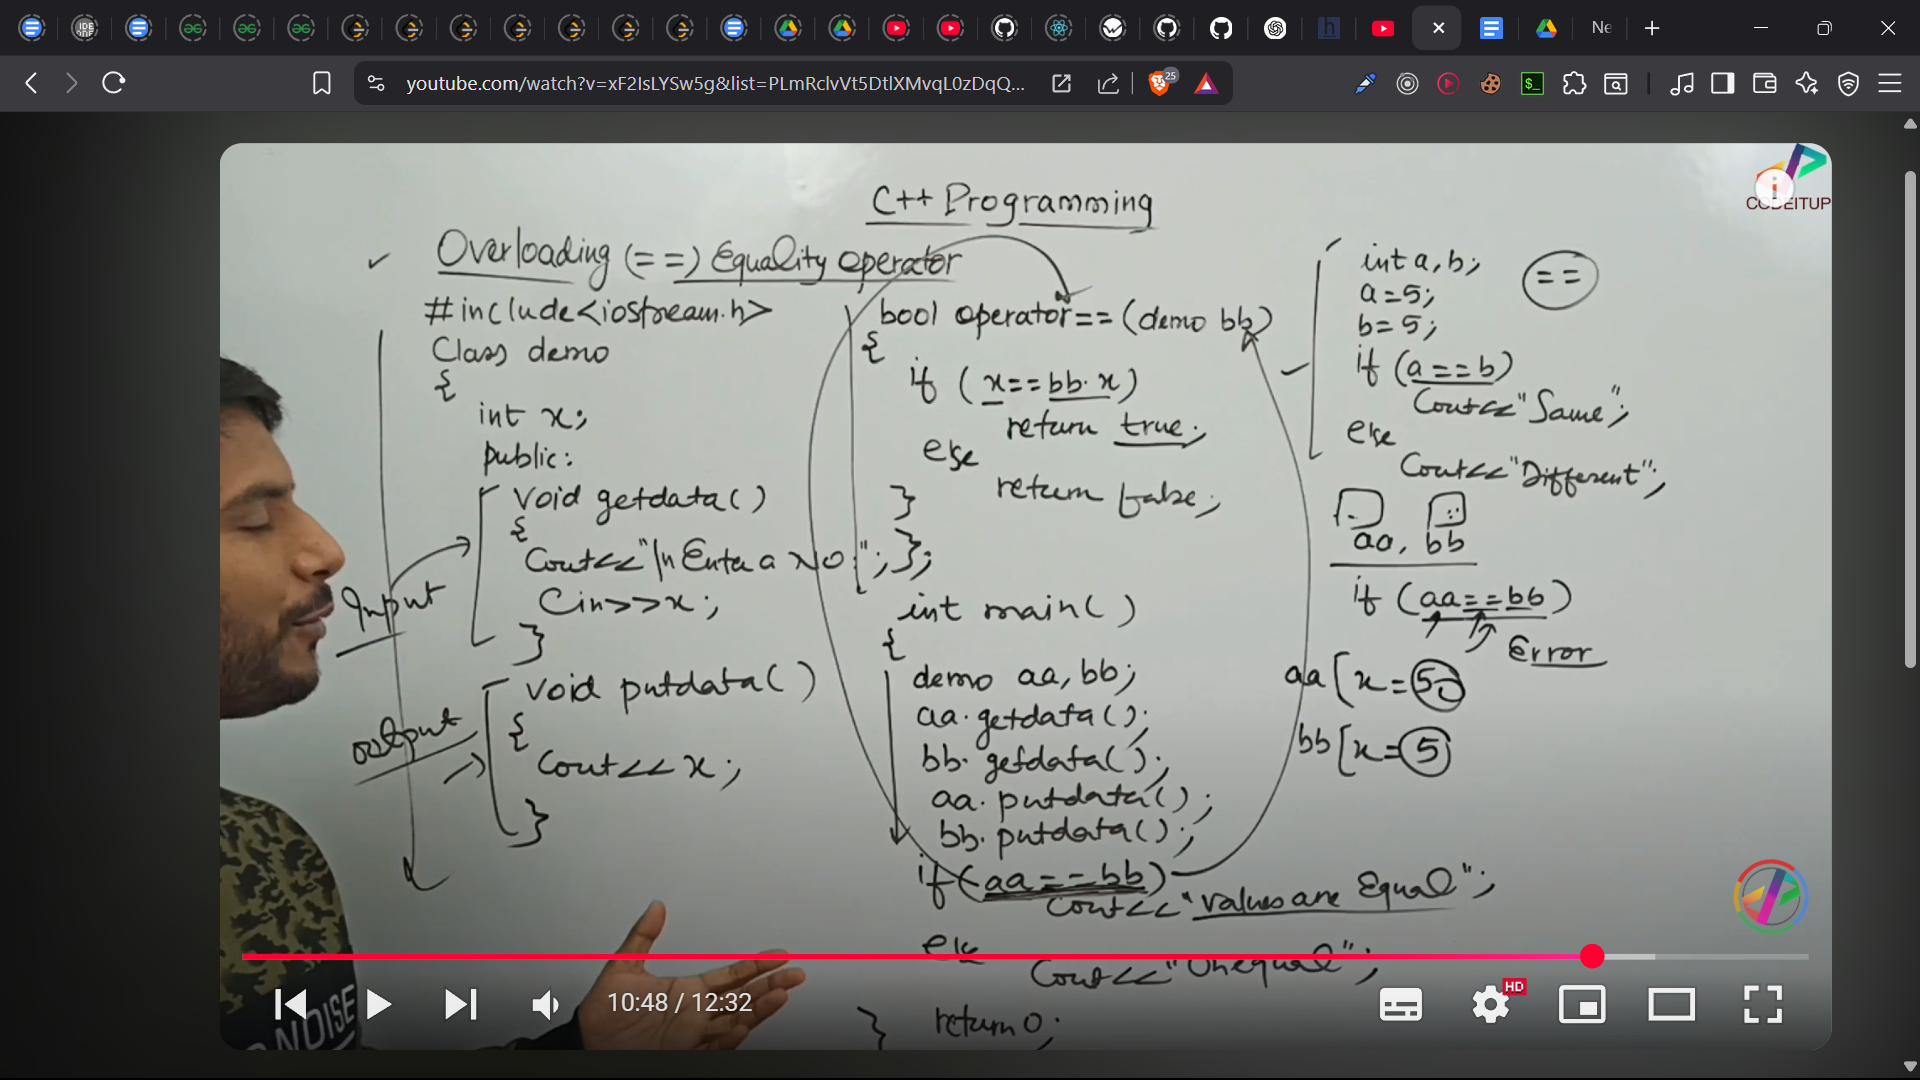 Ne
youtube.com/watch?v=xF2IsLYSw5g&list=PLmRclvVt5DtlXMvqL0zDqQ...
25
CODEITUP
C++ Programming
Overloading (==) Equality operator
#include<iostream.h>
Class demo
{
int x;
public:
void getdata()
{
Cout<<"\n Enter a No:";
Cin>>x;
}
Input
void putdata()
{
Cout<<x;
}
output
bool operator==(demo bb)
{
if (x==bb.x)
return true;
else
return false;
}
};
int main()
{
demo aa, bb;
aa.getdata();
bb.getdata();
aa.putdata();
bb.putdata();
if(aa==bb)
Cout<<"values are Equal";
else
Cout<<"Unequal";
return 0;
}
int a, b;
==
a=5;
b=5;
if (a==b)
Cout<<"Same";
else
Cout<<"Different";
aa, bb
if (aa==bb)
Error
aa[x=5
bb[x=5
NOISE
10:48 / 12:32
HD